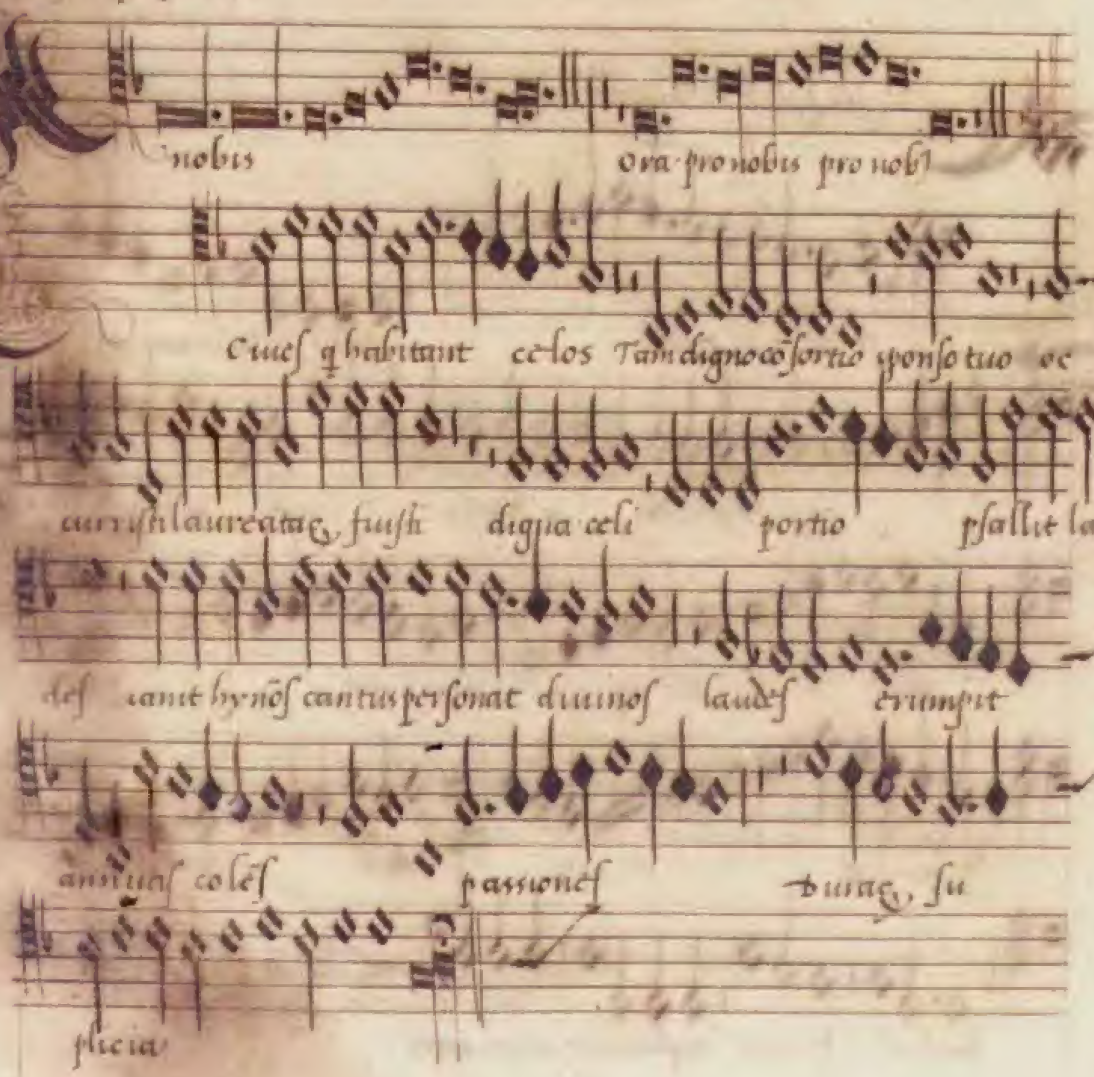 nobis Ora pro nobis pro nob
Ciueſ q̃ habitant cẽlos Tam digno cõſortio ſponſo tuo oc
curriſti laureataq, fuiſti digna celi portio pſallit la
deſ canit hynõſ cantus perſonat diuinoſ laudeſ erumpit
annuaſ colẽſ paſſioneſ Duraq, ſu
plicia